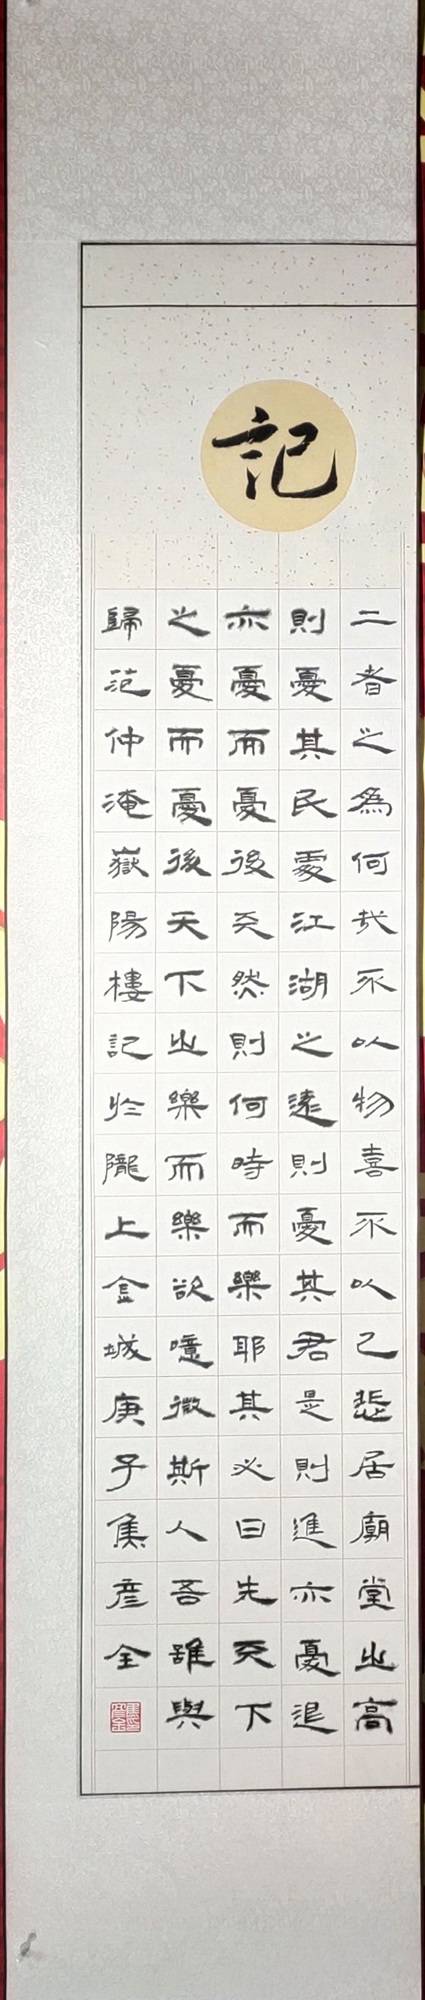 記
二者之為何哉不以物喜不以己悲居廟堂之高
則憂其民處江湖之遠則憂其君是則進亦憂退
亦憂而憂後天然則何時而樂耶其必曰先天下
之憂而憂後天下之樂而樂欤噫微斯人吾誰與
歸范仲淹嶽陽樓記於隴上金城庚子焦彦全